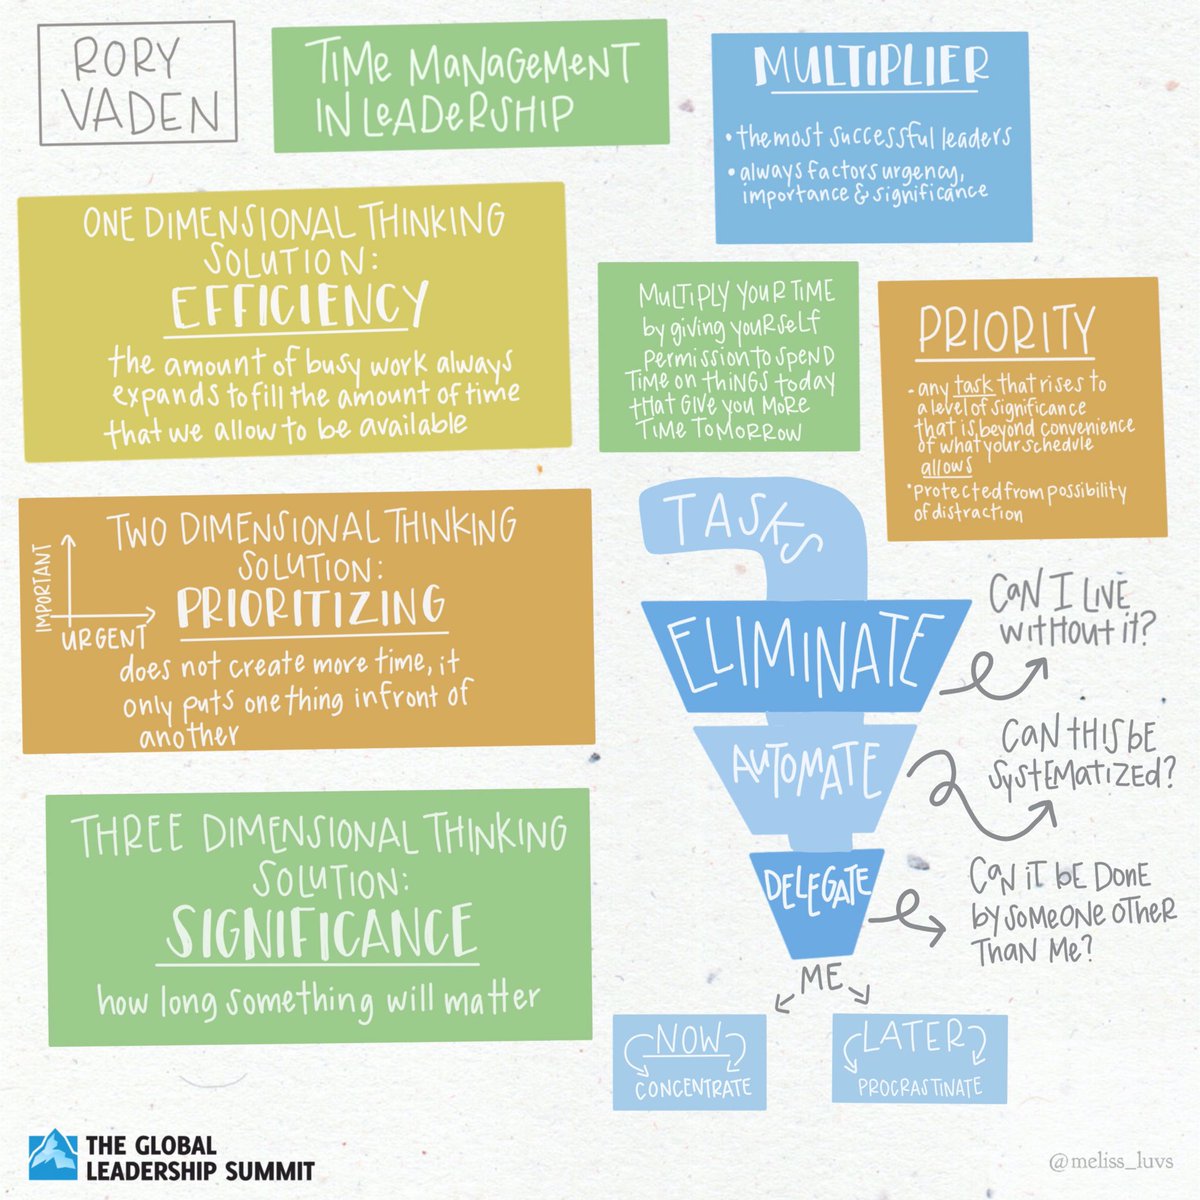 RORY
VADEN
TIME MANAGEMENT
IN LEADERSHIP
MULTIPLIER
• the most successful leaders
• always factors urgency,
importance & significance
ONE DIMENSIONAL THINKING
SOLUTION:
EFFICIENCY
the amount of busy work always
expands to fill the amount of time
that we allow to be available
MULTIPLY YOUR TIME
by giving yourself
permission to spend
time on things today
that give you more
time tomorrow
PRIORITY
- any task that rises to
a level of significance
that is beyond convenience
of what your schedule
allows
• protected from possibility
of distraction
TWO DIMENSIONAL THINKING
SOLUTION:
PRIORITIZING
IMPORTANT
URGENT
does not create more time, it
only puts one thing infront of
another
THREE DIMENSIONAL THINKING
SOLUTION:
SIGNIFICANCE
how long something will matter
TASKS
ELIMINATE
CAN I LIVE
WITHOUT IT?
AUTOMATE
CAN THIS BE
SYSTEMATIZED?
DELEGATE
CAN IT BE DONE
BY SOMEONE OTHER
THAN ME?
ME
NOW
CONCENTRATE
LATER
PROCRASTINATE
THE GLOBAL
LEADERSHIP SUMMIT
@meliss_luvs